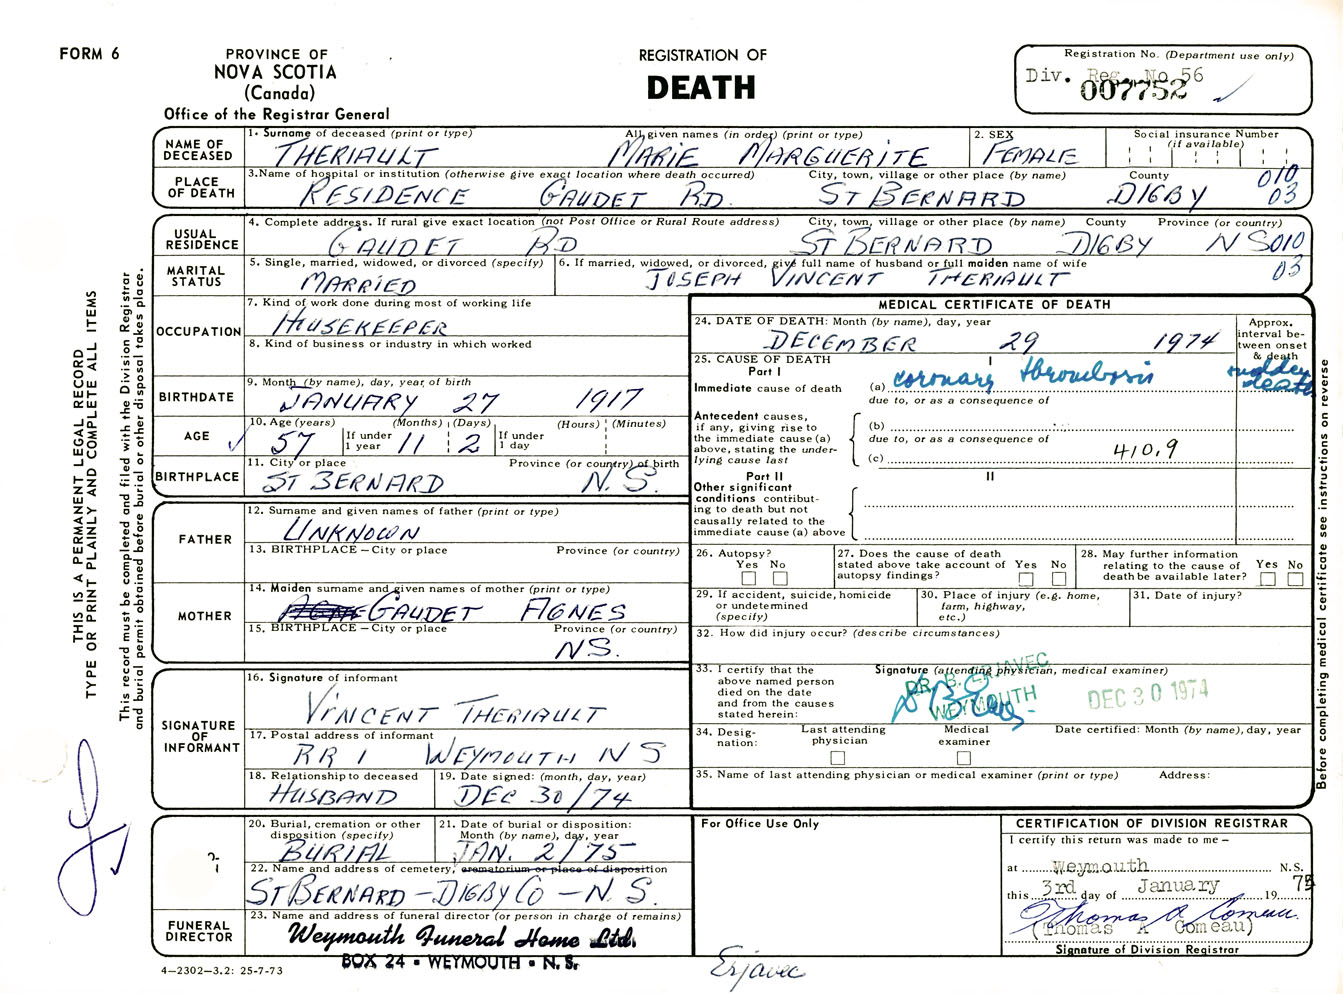 FORM 6
PROVINCE OF
NOVA SCOTIA
(Canada)
Office of the Registrar General
REGISTRATION OF
DEATH
Registration No. (Department use only)
Div. Reg. No 56
007752
NAME OF DECEASED
1. Surname of deceased (print or type) All given names (in order) (print or type) 2. SEX Social insurance Number (if available)
THERIAULT MARIE MARGUERITE FEMALE
PLACE OF DEATH
3. Name of hospital or institution (otherwise give exact location where death occurred) City, town, village or other place (by name) County
RESIDENCE GAUDET RD. ST BERNARD DIGBY 010 03
USUAL RESIDENCE
4. Complete address. If rural give exact location (not Post Office or Rural Route address) City, town, village or other place (by name) County Province (or country)
GAUDET RD ST BERNARD DIGBY N S 010 03
MARITAL STATUS
5. Single, married, widowed, or divorced (specify) 6. If married, widowed, or divorced, give full name of husband or full maiden name of wife
MARRIED JOSEPH VINCENT THERIAULT
OCCUPATION
7. Kind of work done during most of working life
HOUSEKEEPER
8. Kind of business or industry in which worked
BIRTHDATE
9. Month (by name), day, year of birth
JANUARY 27 1917
AGE
10. Age (years) (Months) (Days) (Hours) (Minutes)
57 If under 1 year 11 2 If under 1 day
BIRTHPLACE
11. City or place Province (or country) of birth
ST BERNARD N.S.
FATHER
12. Surname and given names of father (print or type)
UNKNOWN
13. BIRTHPLACE – City or place Province (or country)
MOTHER
14. Maiden surname and given names of mother (print or type)
GAUDET AGNES
15. BIRTHPLACE – City or place Province (or country)
NS.
SIGNATURE OF INFORMANT
16. Signature of informant
VINCENT THERIAULT
17. Postal address of informant
RR 1 WEYMOUTH N S
18. Relationship to deceased 19. Date signed: (month, day, year)
HUSBAND DEC 30/74
20. Burial, cremation or other disposition (specify) 21. Date of burial or disposition: Month (by name), day, year
BURIAL JAN. 2/75
22. Name and address of cemetery, crematorium or place of disposition
ST BERNARD – DIGBY CO – N.S.
FUNERAL DIRECTOR
23. Name and address of funeral director (or person in charge of remains)
Weymouth Funeral Home Ltd.
BOX 24 - WEYMOUTH - N. S.
4–2302–3.2: 25-7-73
MEDICAL CERTIFICATE OF DEATH
24. DATE OF DEATH: Month (by name), day, year
DECEMBER 29 1974
Approx. interval between onset & death
sudden death
25. CAUSE OF DEATH
Part I
I
Immediate cause of death (a) coronary thrombosis
due to, or as a consequence of
Antecedent causes, if any, giving rise to the immediate cause (a) above, stating the underlying cause last
(b)
due to, or as a consequence of
(c) 410.9
Part II
II
Other significant conditions contributing to death but not causally related to the immediate cause (a) above
26. Autopsy? Yes No
27. Does the cause of death stated above take account of autopsy findings? Yes No
28. May further information relating to the cause of death be available later? Yes No
29. If accident, suicide, homicide or undetermined (specify)
30. Place of injury (e.g. home, farm, highway, etc.)
31. Date of injury?
32. How did injury occur? (describe circumstances)
33. I certify that the above named person died on the date and from the causes stated herein:
Signature (attending physician, medical examiner)
DR. B. ERJAVEC
WEYMOUTH
DEC 30 1974
34. Designation: Last attending physician Medical examiner Date certified: Month (by name), day, year
35. Name of last attending physician or medical examiner (print or type) Address:
For Office Use Only
Erjavec
CERTIFICATION OF DIVISION REGISTRAR
I certify this return was made to me –
at Weymouth N.S.
this 3rd day of January 19 75
Thomas A Comeau
(Thomas A Comeau)
Signature of Division Registrar
THIS IS A PERMANENT LEGAL RECORD
TYPE OR PRINT PLAINLY AND COMPLETE ALL ITEMS
This record must be completed and filed with the Division Registrar
and burial permit obtained before burial or other disposal takes place.
Before completing medical certificate see instructions on reverse